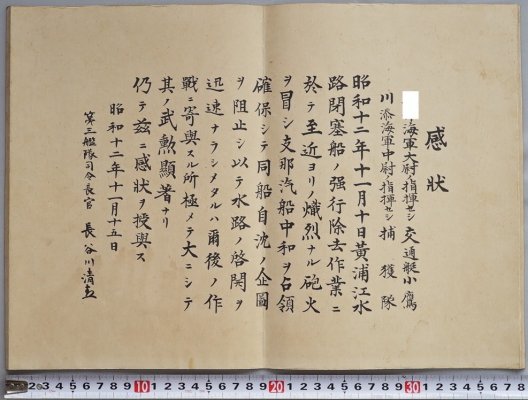 感状
海軍大尉指揮セシ交通艇小鷹
川添海軍中尉指揮セシ捕獲隊
昭和十二年十一月十日黄浦江水
路閉塞船ノ强行除去作業ニ
於テ至近ヨリノ熾烈ナル砲火
ヲ冒シ支那汽船中和ヲ占領
確保シテ同船自沈ノ企圖
ヲ阻止シ以テ水路ノ啓開ヲ
迅速ナラシメタルハ爾後ノ作
戰ニ寄與スル所極メテ大ニシテ
其ノ武勲顯著ナリ
仍テ茲ニ感狀ヲ授與ス
昭和十二年十一月十五日
第三艦隊司令長官 長谷川清
1 2 3 4 5 6 7 8 9 10 1 2 3 4 5 6 7 8 9 20 1 2 3 4 5 6 7 8 9 30 1 2 3 4 5 6 7